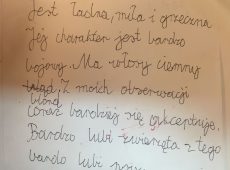 jest ładna, miła i grzeczna
Jej charakter jest bardzo
bojowy. Ma włosy ciemny
blond. Z moich obserwacji
coraz bardziej się akceptuje.
Bardzo lubi zwierzęta z tego
bardo lubi